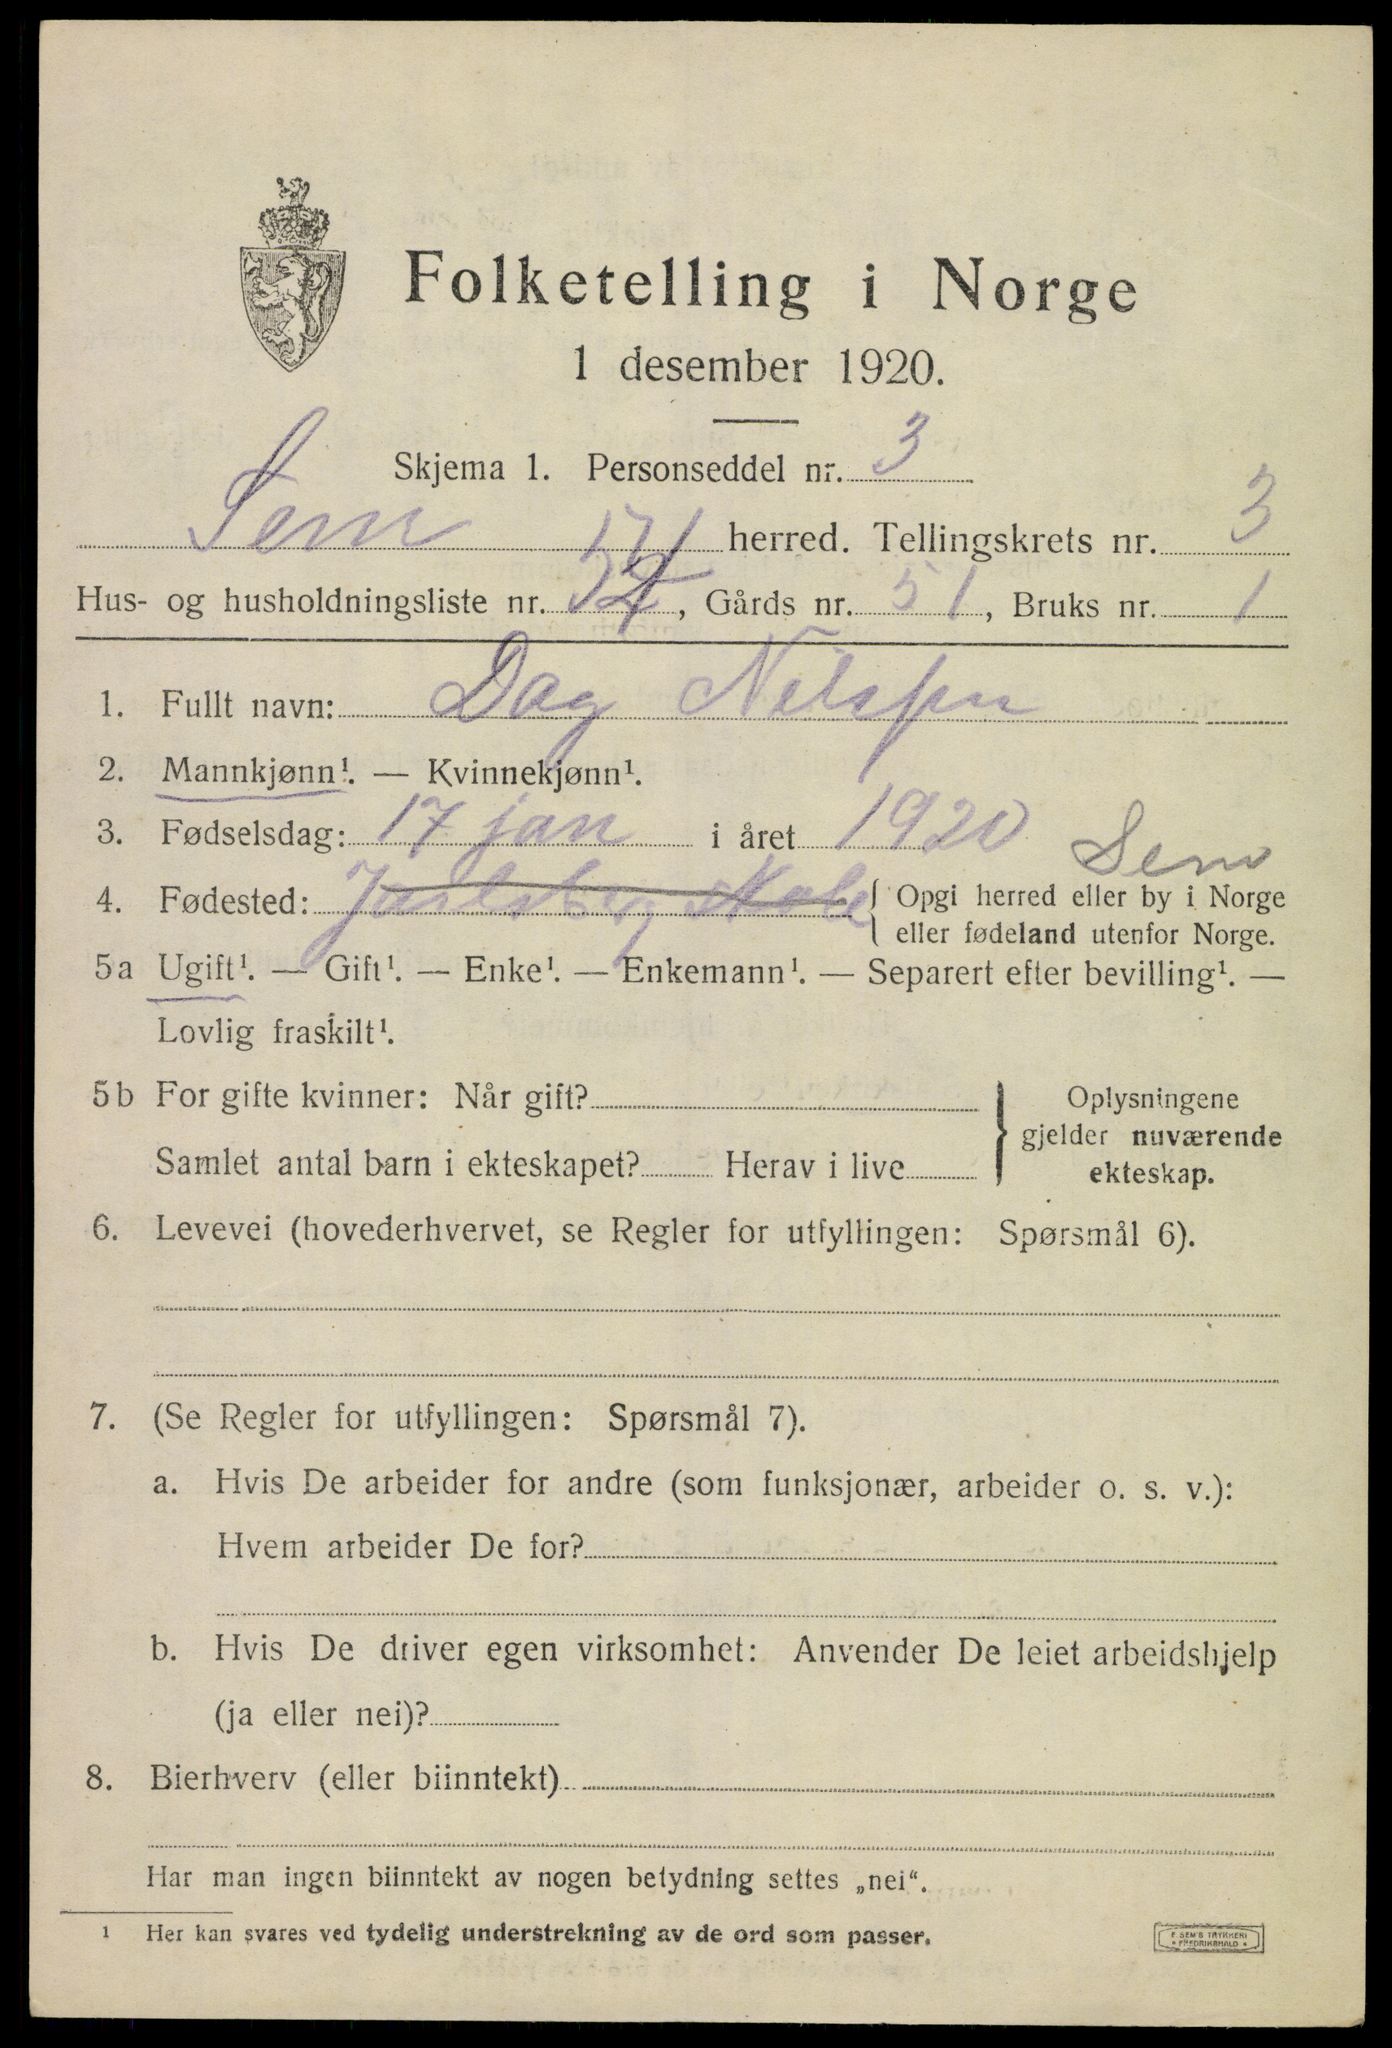 Folketelling i Norge
1 desember 1920.
Skjema 1. Personseddel nr. 3
Sem herred. Tellingskrets nr. 3
Hus- og husholdningsliste nr. Gårds nr. 51, Bruks nr. 1
1. Fullt navn: Dag Nilsen
2. Mannkjønn¹. — Kvinnekjønn¹.
3. Fødselsdag: 17 jan i året 1920
Sem
4. Fødested: Jarlsberg Skole { Opgi herred eller by i Norge
eller fødeland utenfor Norge.
5a Ugift¹. — Gift¹. — Enke¹. — Enkemann¹. — Separert efter bevilling¹. —
Lovlig fraskilt¹.
5b For gifte kvinner: Når gift? } Oplysningene
gjelder nuværende
Samlet antal barn i ekteskapet? Herav i live ekteskap.
6. Levevei (hovederhvervet, se Regler for utfyllingen: Spørsmål 6).
7. (Se Regler for utfyllingen: Spørsmål 7).
a. Hvis De arbeider for andre (som funksjonær, arbeider o. s. v.):
Hvem arbeider De for?
b. Hvis De driver egen virksomhet: Anvender De leiet arbeidshjelp
(ja eller nei)?
8. Bierhverv (eller biinntekt)
Har man ingen biinntekt av nogen betydning settes „nei“.
¹ Her kan svares ved tydelig understrekning av de ord som passer.
F. SEM'S TRYKKERI
• FREDRIKSHALD •